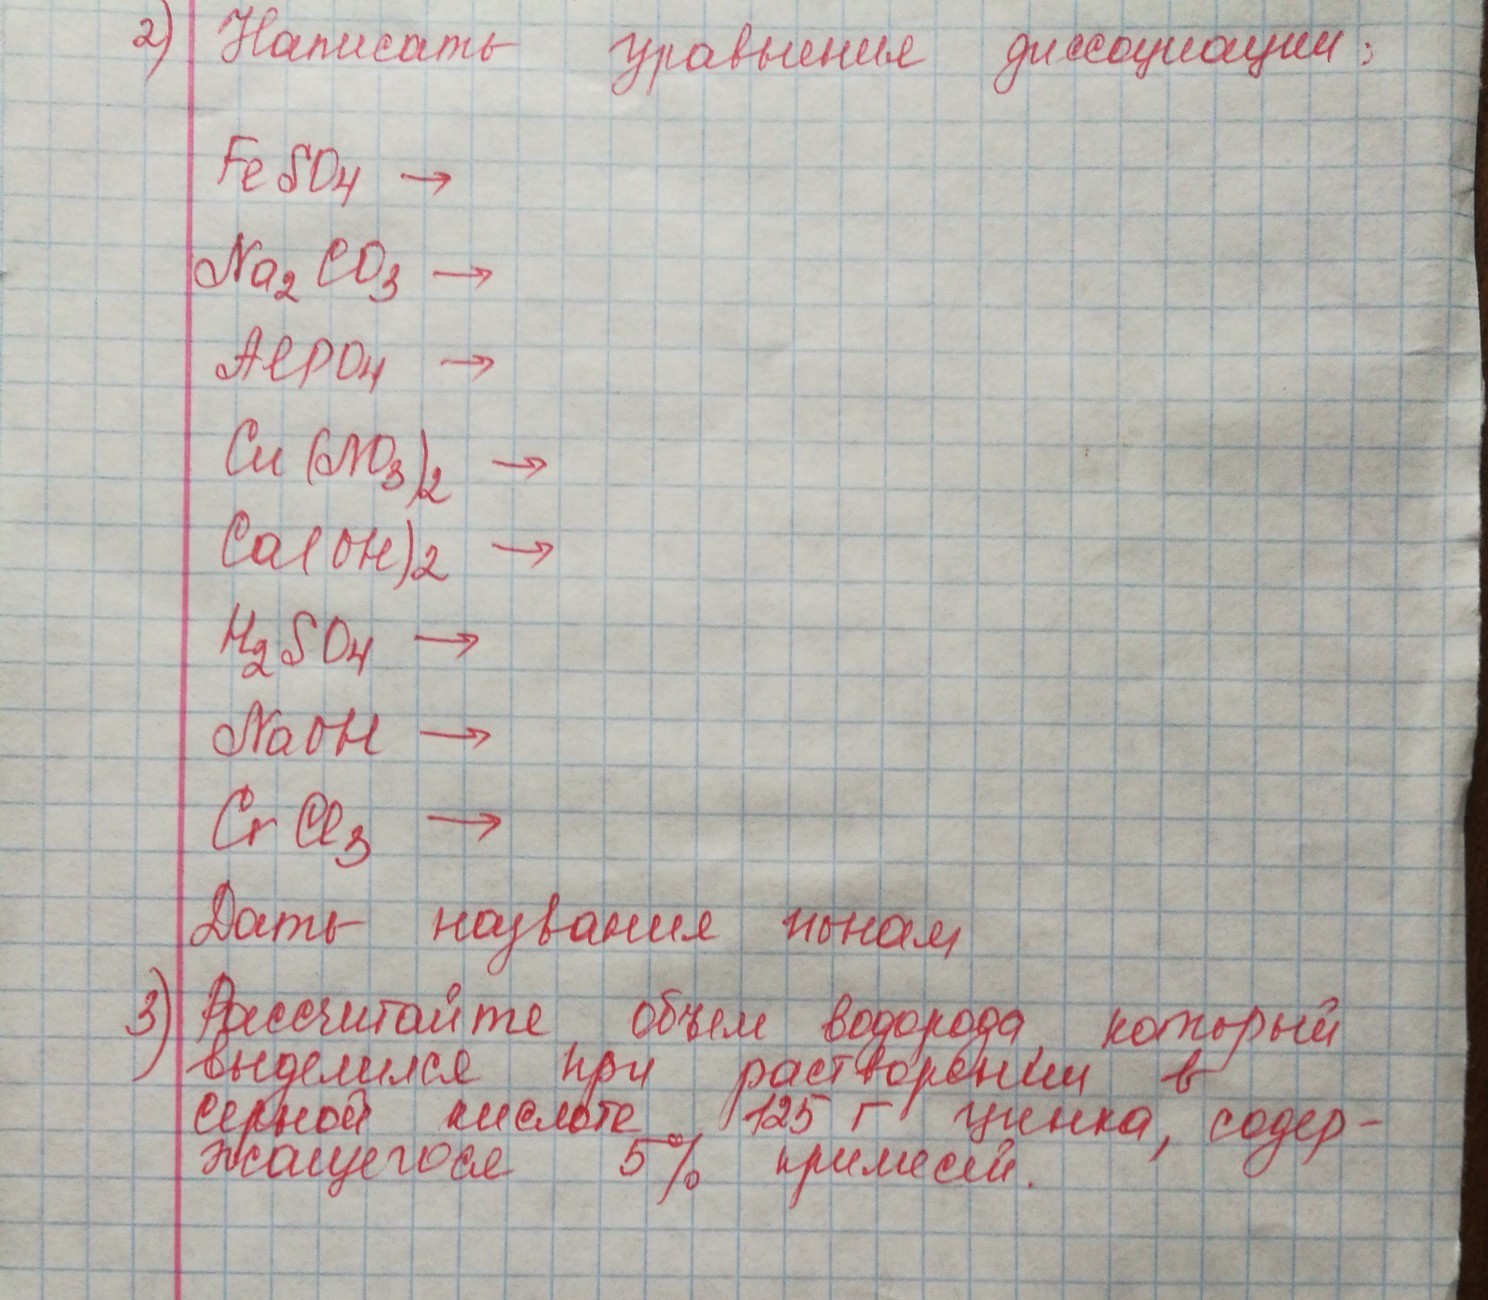 2) Написать уравнения диссоциации:
FeSO4 →
Na2CO3 →
AlPO4 →
Cu(NO3)2 →
Ca(OH)2 →
H2SO4 →
NaOH →
CrCl3 →
Дать названия ионам
3) Рассчитайте объем водорода, который
выделился при растворении в
серной кислоте 125 г цинка, содер-
жащегося 5% примесей.